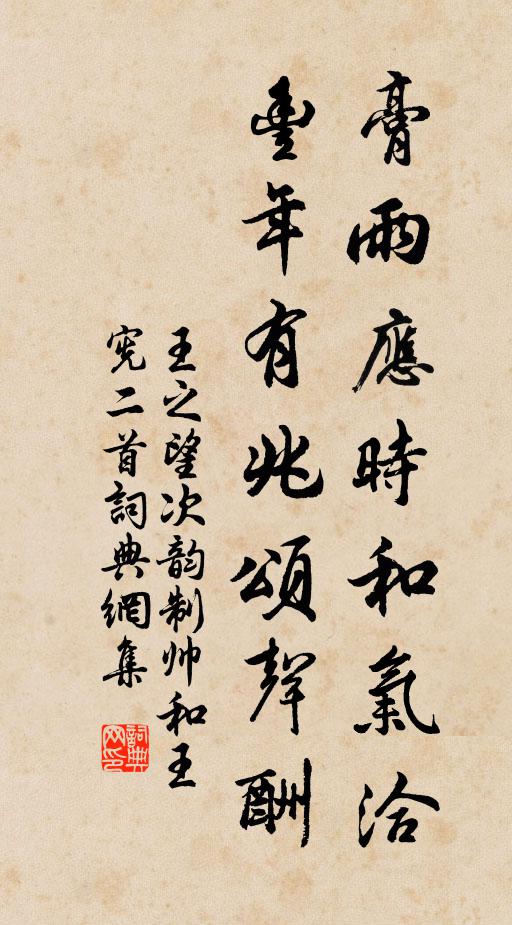 膏雨應時和氣洽
豐年有兆頌聲酬
王之望次韵制帅和王
宪二首詞典網集
詞典网印